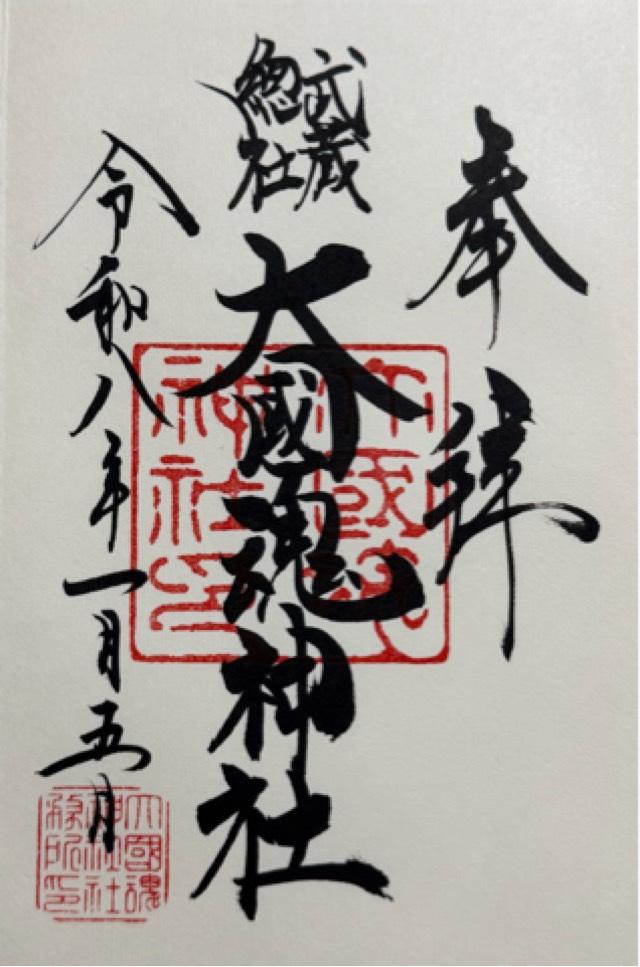 奉拝
武蔵
總社
大國魂神社
令和八年一月五日
大國魂
神社印
大國魂
神社社
務所印